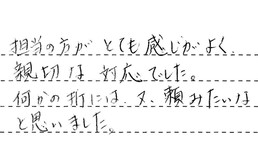 担当の方が とても感じがよく、
親切な対応でした。
何かの折には、又、頼みたいな
と思いました。